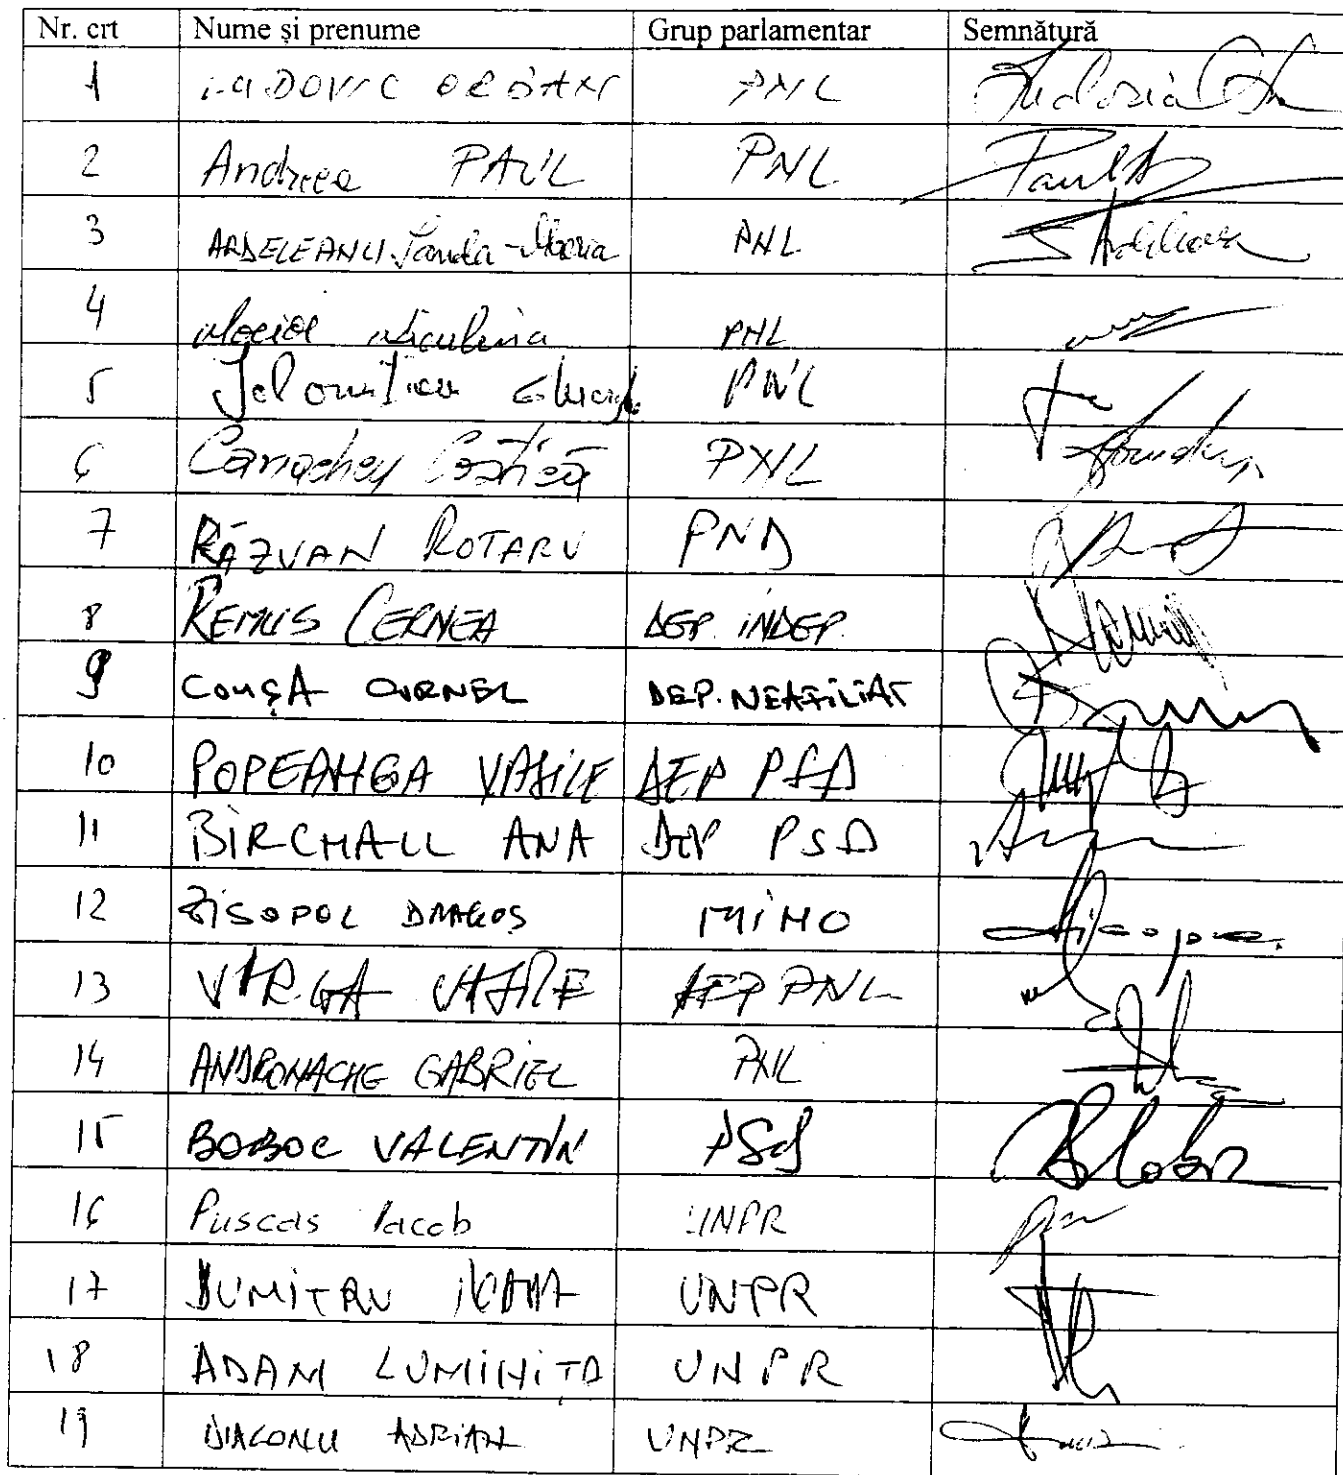 Nr. crt Nume și prenume Grup parlamentar Semnătură
1 LUDOVIC ORBAN PNL
2 Andreea PAUL PNL
3 ARDELEANU Sanda-Maria PNL
4 Mocioi Niculina PNL
5 Ialomițianu Gheorghe PNL
6 Canacheu Costică PNL
7 RĂZVAN ROTARU PND
8 REMUS CERNEA DEP. INDEP.
9 COMȘA CORNEL DEP. NEAFILIAT
10 POPEANGA VASILE DEP PSD
11 BIRCHALL ANA DEP PSD
12 ZISOPOL DRAGOȘ MINO
13 VARGA VASILE DEP PNL
14 ANDRONACHE GABRIEL PNL
15 BOBOC VALENTIN PSD
16 Puscas Iacob UNPR
17 DUMITRU IOANA UNPR
18 ADAM LUMINIȚA UNPR
19 DIACONU ADRIAN UNPR